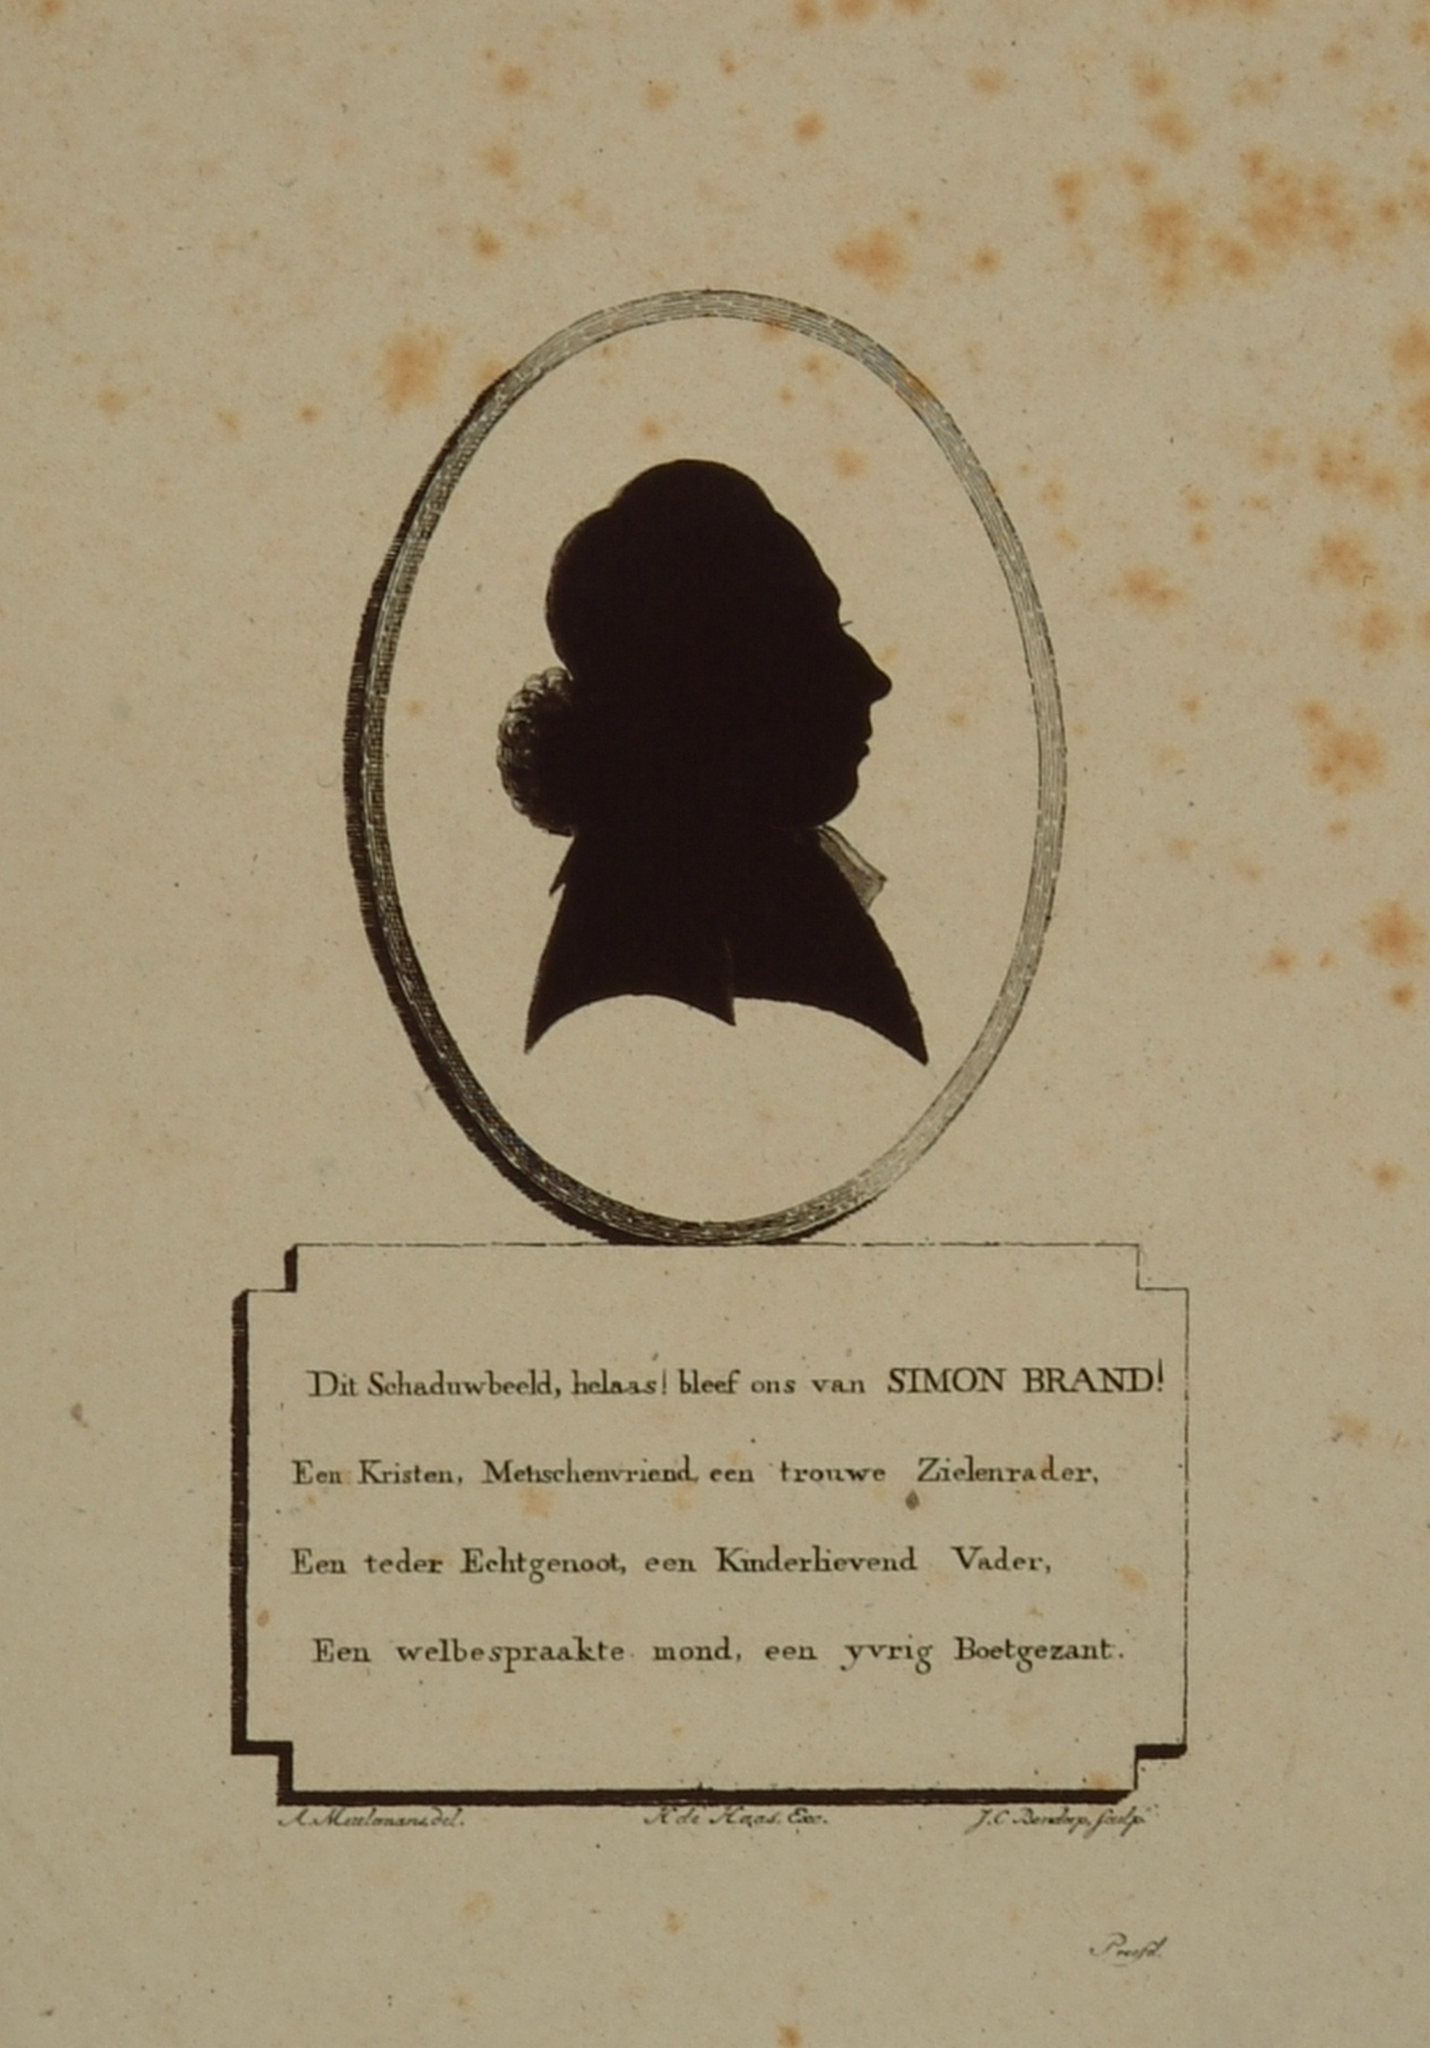 Dit Schaduwbeeld, helaas! bleef ons van SIMON BRAND!
Een Kristen, Menschenvriend, een trouwe Zielenrader,
Een teder Echtgenoot, een Kinderlievend Vader,
Een welbespraakte mond, een yvrig Boetgezant.
A. Meulemans, del. H de Haas. Exc. J. C. Bendorp, sculp